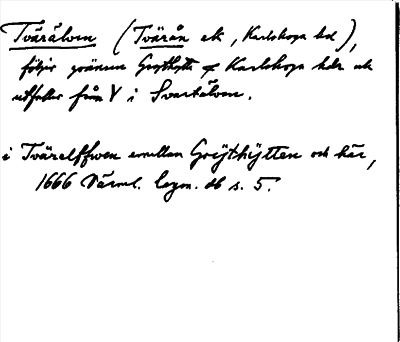 Tvärälven (Tvärån ek, Karlskoga bd),
följer gränsen Grythytte o Karlskoga hdr och
utfaller från V i Svartälven.
i Tvärelffwen emellan Grÿthÿtten och här,
1666 Värml. lagm. db s. 5.